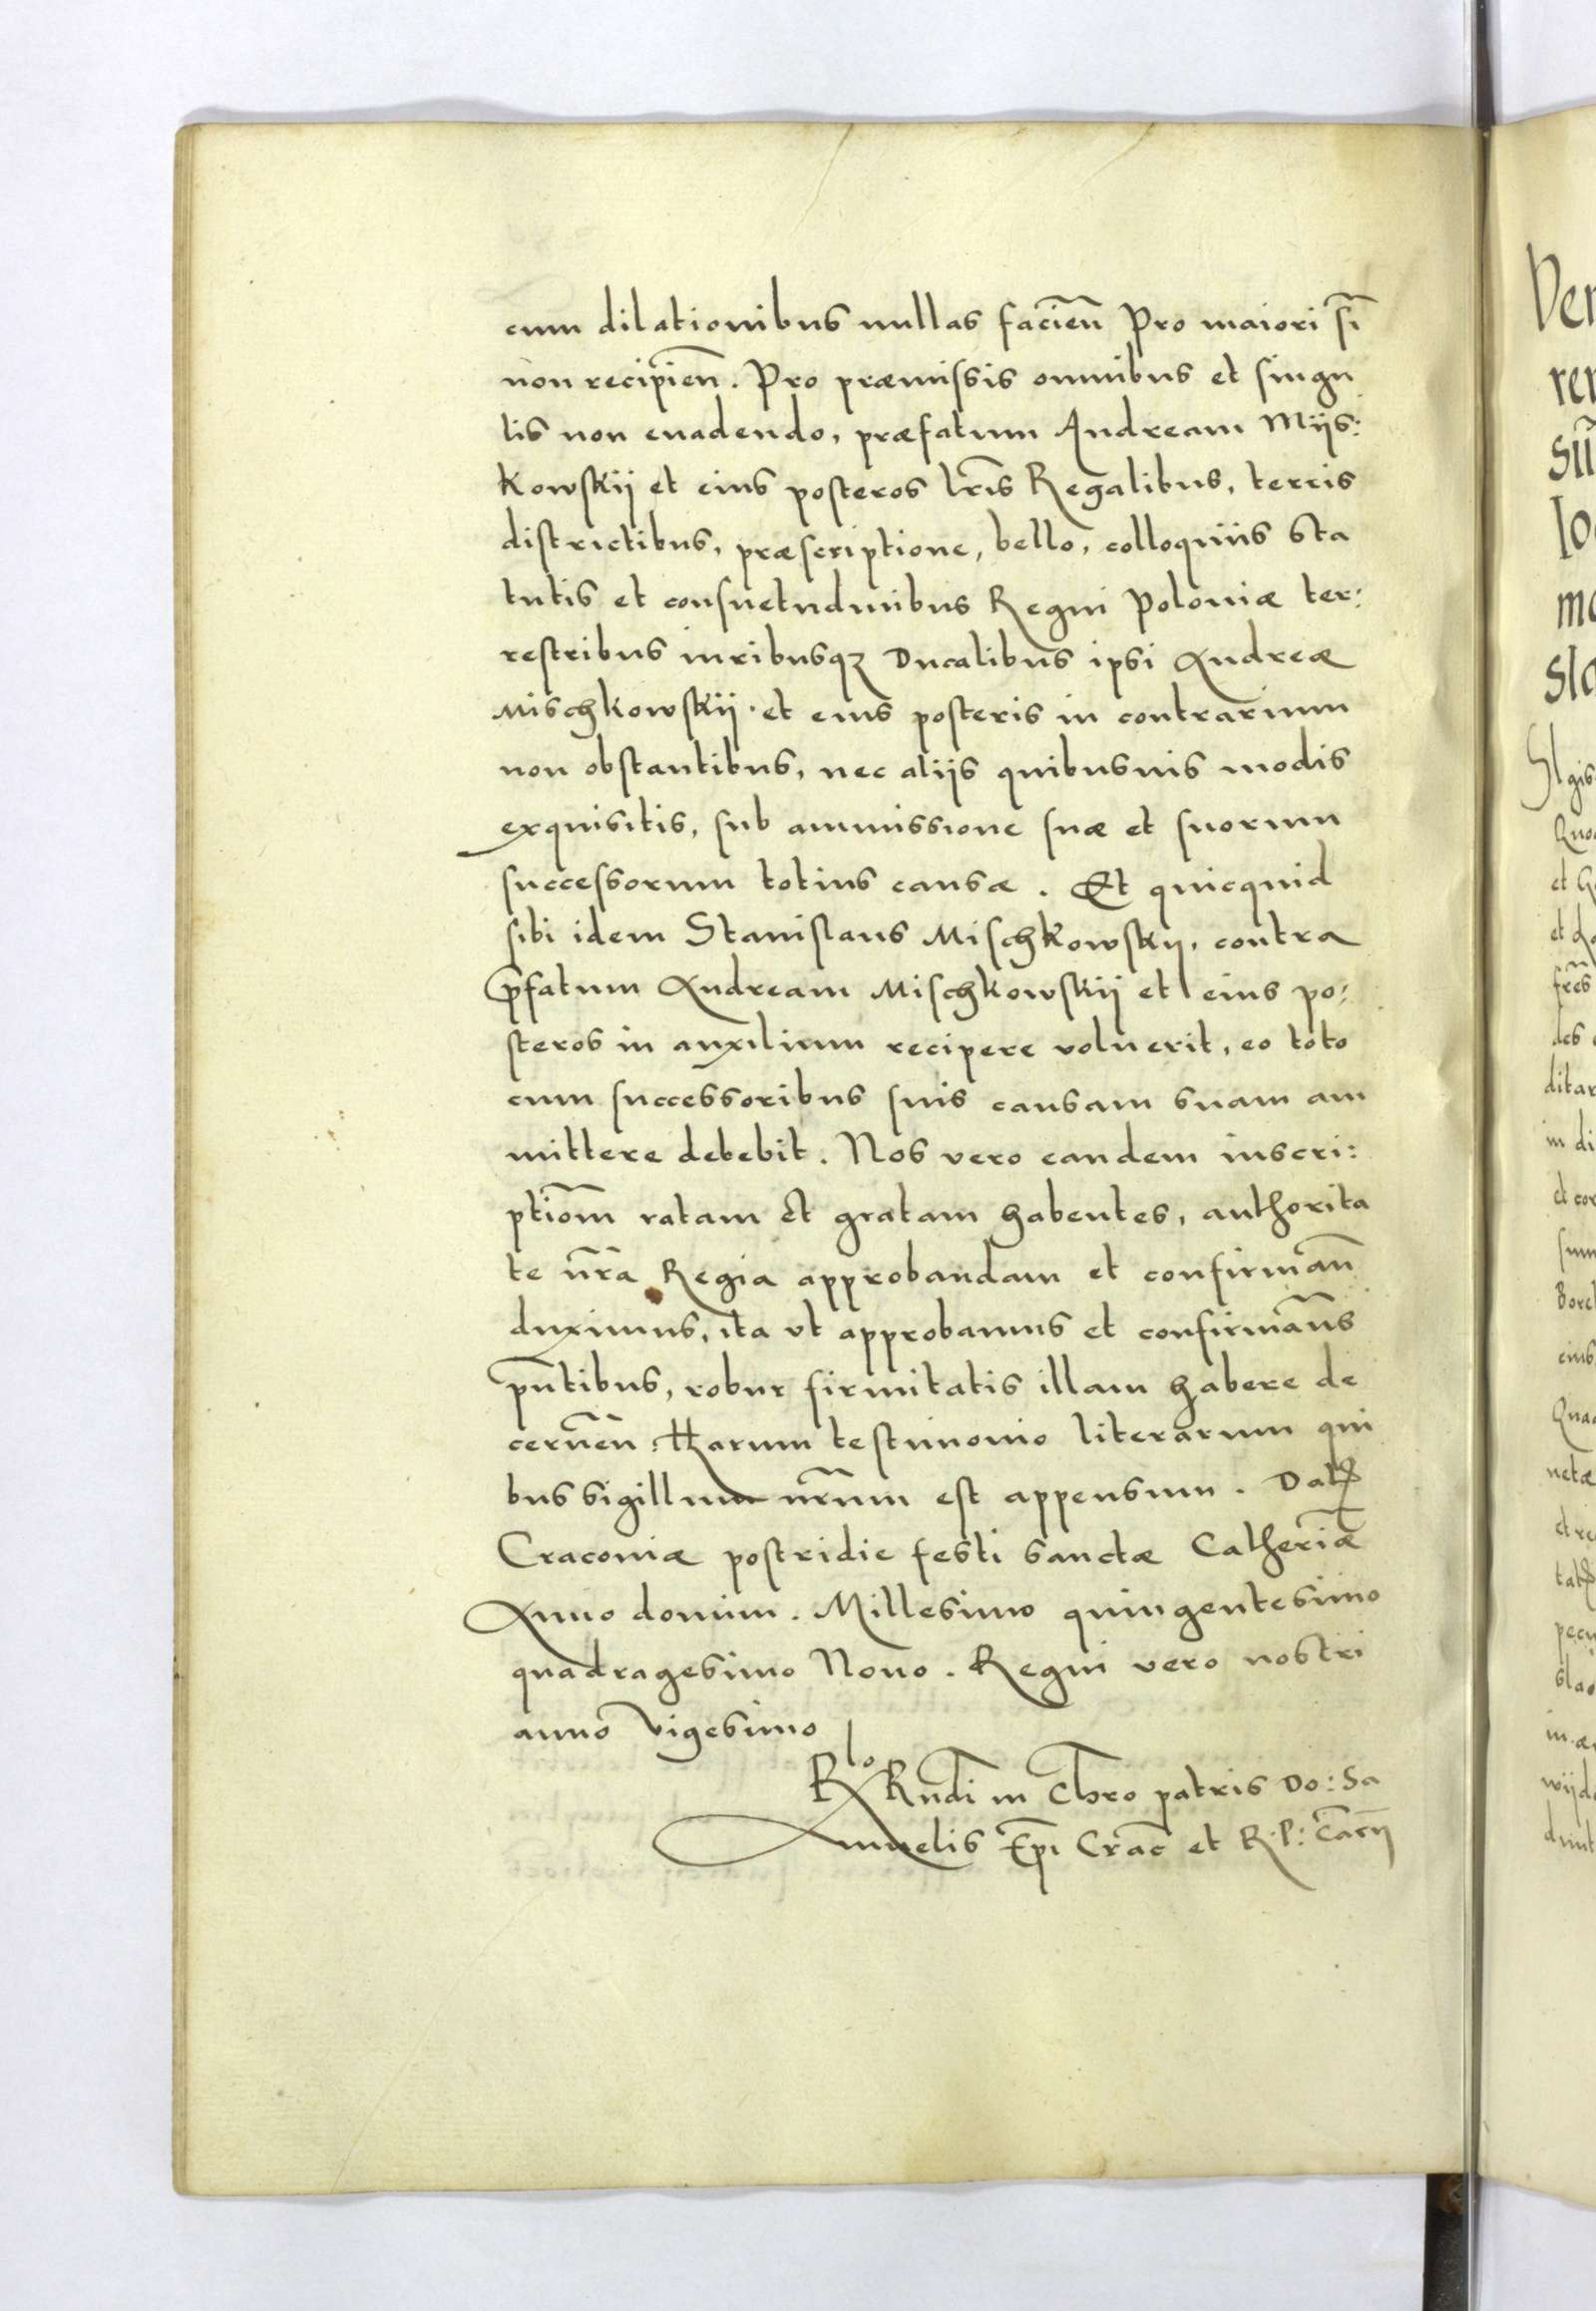 cum dilationibus nullas facien̄ Pro maiori sī
non recipien̄. Pro præmissis omnibus et singu
lis non euadendo, præfatum Andream Mijs:
kowskij et eius posteros lr̄is Regalibus, terris
districtibus, præscriptione, bello, colloquiis sta
tutis et consuetudinibus Regni Poloniæ ter:
restribus iuribusqȝ Ducalibus ipsi Andreæ
Mischkowskij. et eius posteris in contrarium
non obstantibus, nec alijs quibusuis modis
exquisitis, sub ammissione suæ et suorum
successorum totius causæ. Et quicquid
sibi idem Stanislaus Mischkowskij, contra
p̄fatum Andream Mischkowskij et eius po:
steros in auxilium recipere voluerit, eo toto
cum successoribus suis causam suam am
mittere debebit. Nos vero eandem inscri:
ptiom̄ ratam et gratam habentes, authorita
te nr̄a Regia approbandam et confirman̄
duximus, ita vt approbamus et confirmam̄s
pn̄tibus, robur firmitatis illam habere de
cernen̄. Harum testimonio literarum qui
bus sigillum nr̄um est appensum. Datꝭ
Cracouiæ postridie festi sanctæ Catheriǣ
Anno domini. Millesimo quingentesimo
quadragesimo Nono. Regni vero nostri
anno vigesimo
Rlo Rndi in Chro patris Do: Sa
muelis Ep̄i Crac̄ et R. P: Can̄cij
Ver
rer
sū
Io
mo
sla
Sigis
Quo
et
et
fr̄es
des
ditar
in di
et con
sum
Borc
eius
Qua
netæ
et re
tatꝭ
pecu
slao
in æ
wijd
dunt